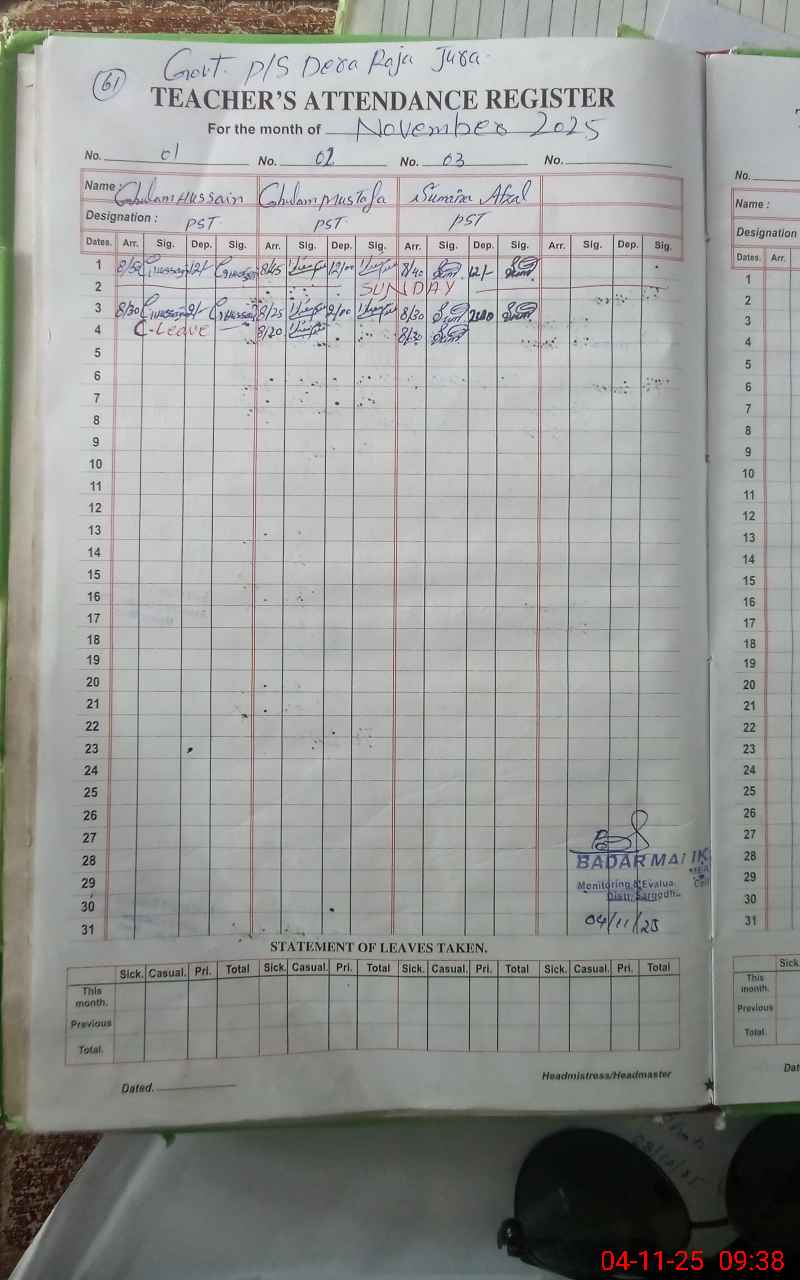 61
Govt. P/S Dera Raja Jura
TEACHER'S ATTENDANCE REGISTER
For the month of November 2025
No. 01 No. 02 No. 03 No.
Name: Ghulam Hussain Ghulam Mustafa Sumaira Afzal
Designation: PST PST PST
Dates. Arr. Sig. Dep. Sig. Arr. Sig. Dep. Sig. Arr. Sig. Dep. Sig. Arr. Sig. Dep. Sig.
1 8/50 GHussain 12/- GHussain 8/45 12/00 8/40 12/-
2 SUNDAY
3 8/30 GHussain 2/- GHussain 8/25 2/00 8/30
4 C-Leave 8/20 8/30
5
6
7
8
9
10
11
12
13
14
15
16
17
18
19
20
21
22
23
24
25
26
27
28
29
30
31
BADAR MALIK
Monitoring & Evalua.
Distt: Sargodh
04/11/25
STATEMENT OF LEAVES TAKEN.
Sick. Casual. Pri. Total Sick. Casual. Pri. Total Sick. Casual. Pri. Total Sick. Casual. Pri. Total
This month.
Previous
Total.
Dated.
Headmistress/Headmaster
No.
Name :
Designation
Dates. Arr.
1
2
3
4
5
6
7
8
9
10
11
12
13
14
15
16
17
18
19
20
21
22
23
24
25
26
27
28
29
30
31
Sick
This month.
Previous
Total.
Dat
04-11-25 09:38